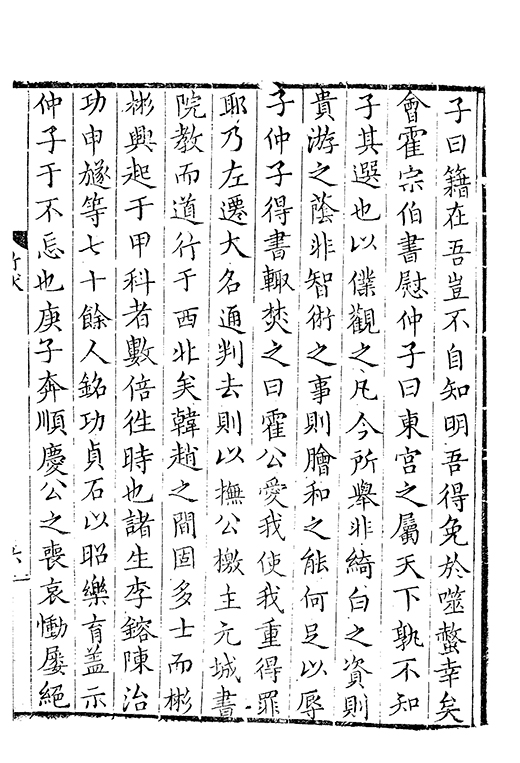 子曰籍在吾豈不自知明吾得免於噬螫幸矣
會霍宗伯書慰仲子曰東宮之屬天下孰不知
子其選也以僕觀之凡今所舉非綺白之資則
貴游之蔭非智術之事則膾和之能何足以辱
子仲子得書輙焚之曰霍公愛我使我重得罪
耶乃左遷大名通判去則以撫公檄主元城書
院教而道行于西北矣韓趙之間固多士而彬
彬興起于甲科者數倍徃時也諸生李鎔陳治
功申㸂等七十餘人銘功貞石以昭樂育盖示
仲子于不忘也庚子奔順慶公之喪哀慟屢絕